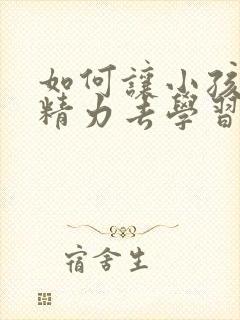 如何讓小孩
精力去學習
宿舍生